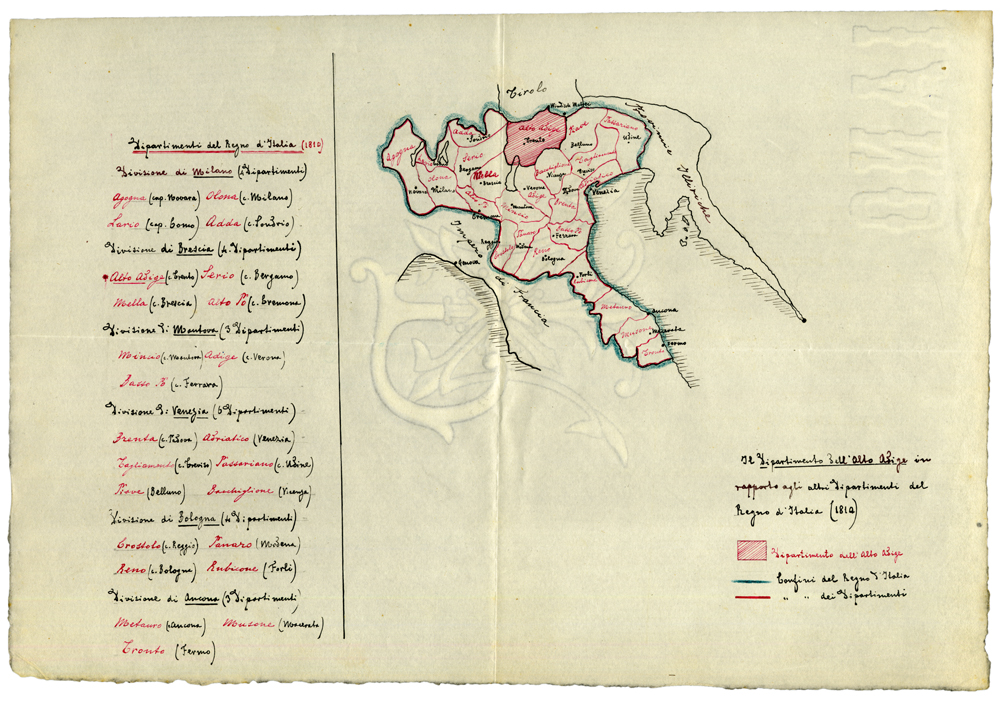 Dipartimenti del Regno d'Italia (1810)
Divisione di Milano (4 Dipartimenti)
Agogna (cap. Novara) Olona (c. Milano)
Lario (cap. Como) Adda (c. Sondrio)
Divisione di Brescia (4 Dipartimenti)
Alto Adige (c. Trento) Serio (c. Bergamo)
Mella (c. Brescia) Alto Pò (c. Cremona)
Divisione di Mantova (3 Dipartimenti)
Mincio (c. Mantova) Adige (c. Verona)
Basso Pò (c. Ferrara)
Divisione di Venezia (6 Dipartimenti)
Brenta (c. Padova) Adriatico (Venezia)
Tagliamento (c. Treviso) Passariano (c. Udine)
Piave (Belluno) Bacchiglione (Vicenza)
Divisione di Bologna (4 Dipartimenti)
Crostolo (c. Reggio) Panaro (Modena)
Reno (c. Bologna) Rubicone (Forlì)
Divisione di Ancona (3 Dipartimenti)
Metauro (Ancona) Musone (Macerata)
Tronto (Fermo)
Tirolo
Windisch Matrei
Provincie Illiriche
Agogna
Novara
Lario
Adda
Sondrio
Olona
Milano
Serio
Bergamo
Mella
Brescia
Alto Adige
Trento
Piave
Belluno
Passariano
Udine
Bacchiglione
Vicenza
Tagliamento
Adriatico
Venezia
Verona
Adige
Brenta
Alto Pò
Cremona
Mincio
Mantova
Basso Pò
Ferrara
Panaro
Crostolo
Reggio
Reno
Bologna
Forlì
Rubicone
Metauro
Ancona
Musone
Macerata
Fermo
Tronto
Genova
Impero di Francia
Pola
Il Dipartimento dell'Alto Adige in
rapporto agli altri Dipartimenti del
Regno d'Italia (1810)
Dipartimento dell'Alto Adige
Confini del Regno d'Italia
" " dei Dipartimenti